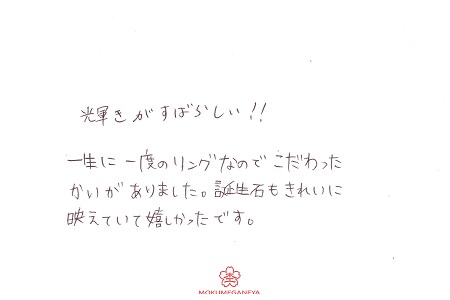 輝きがすばらしい!!
一生に一度のリングなのでこだわった
かいがありました。誕生石もきれいに
映えていて嬉しかったです。
MOKUMEGANEYA